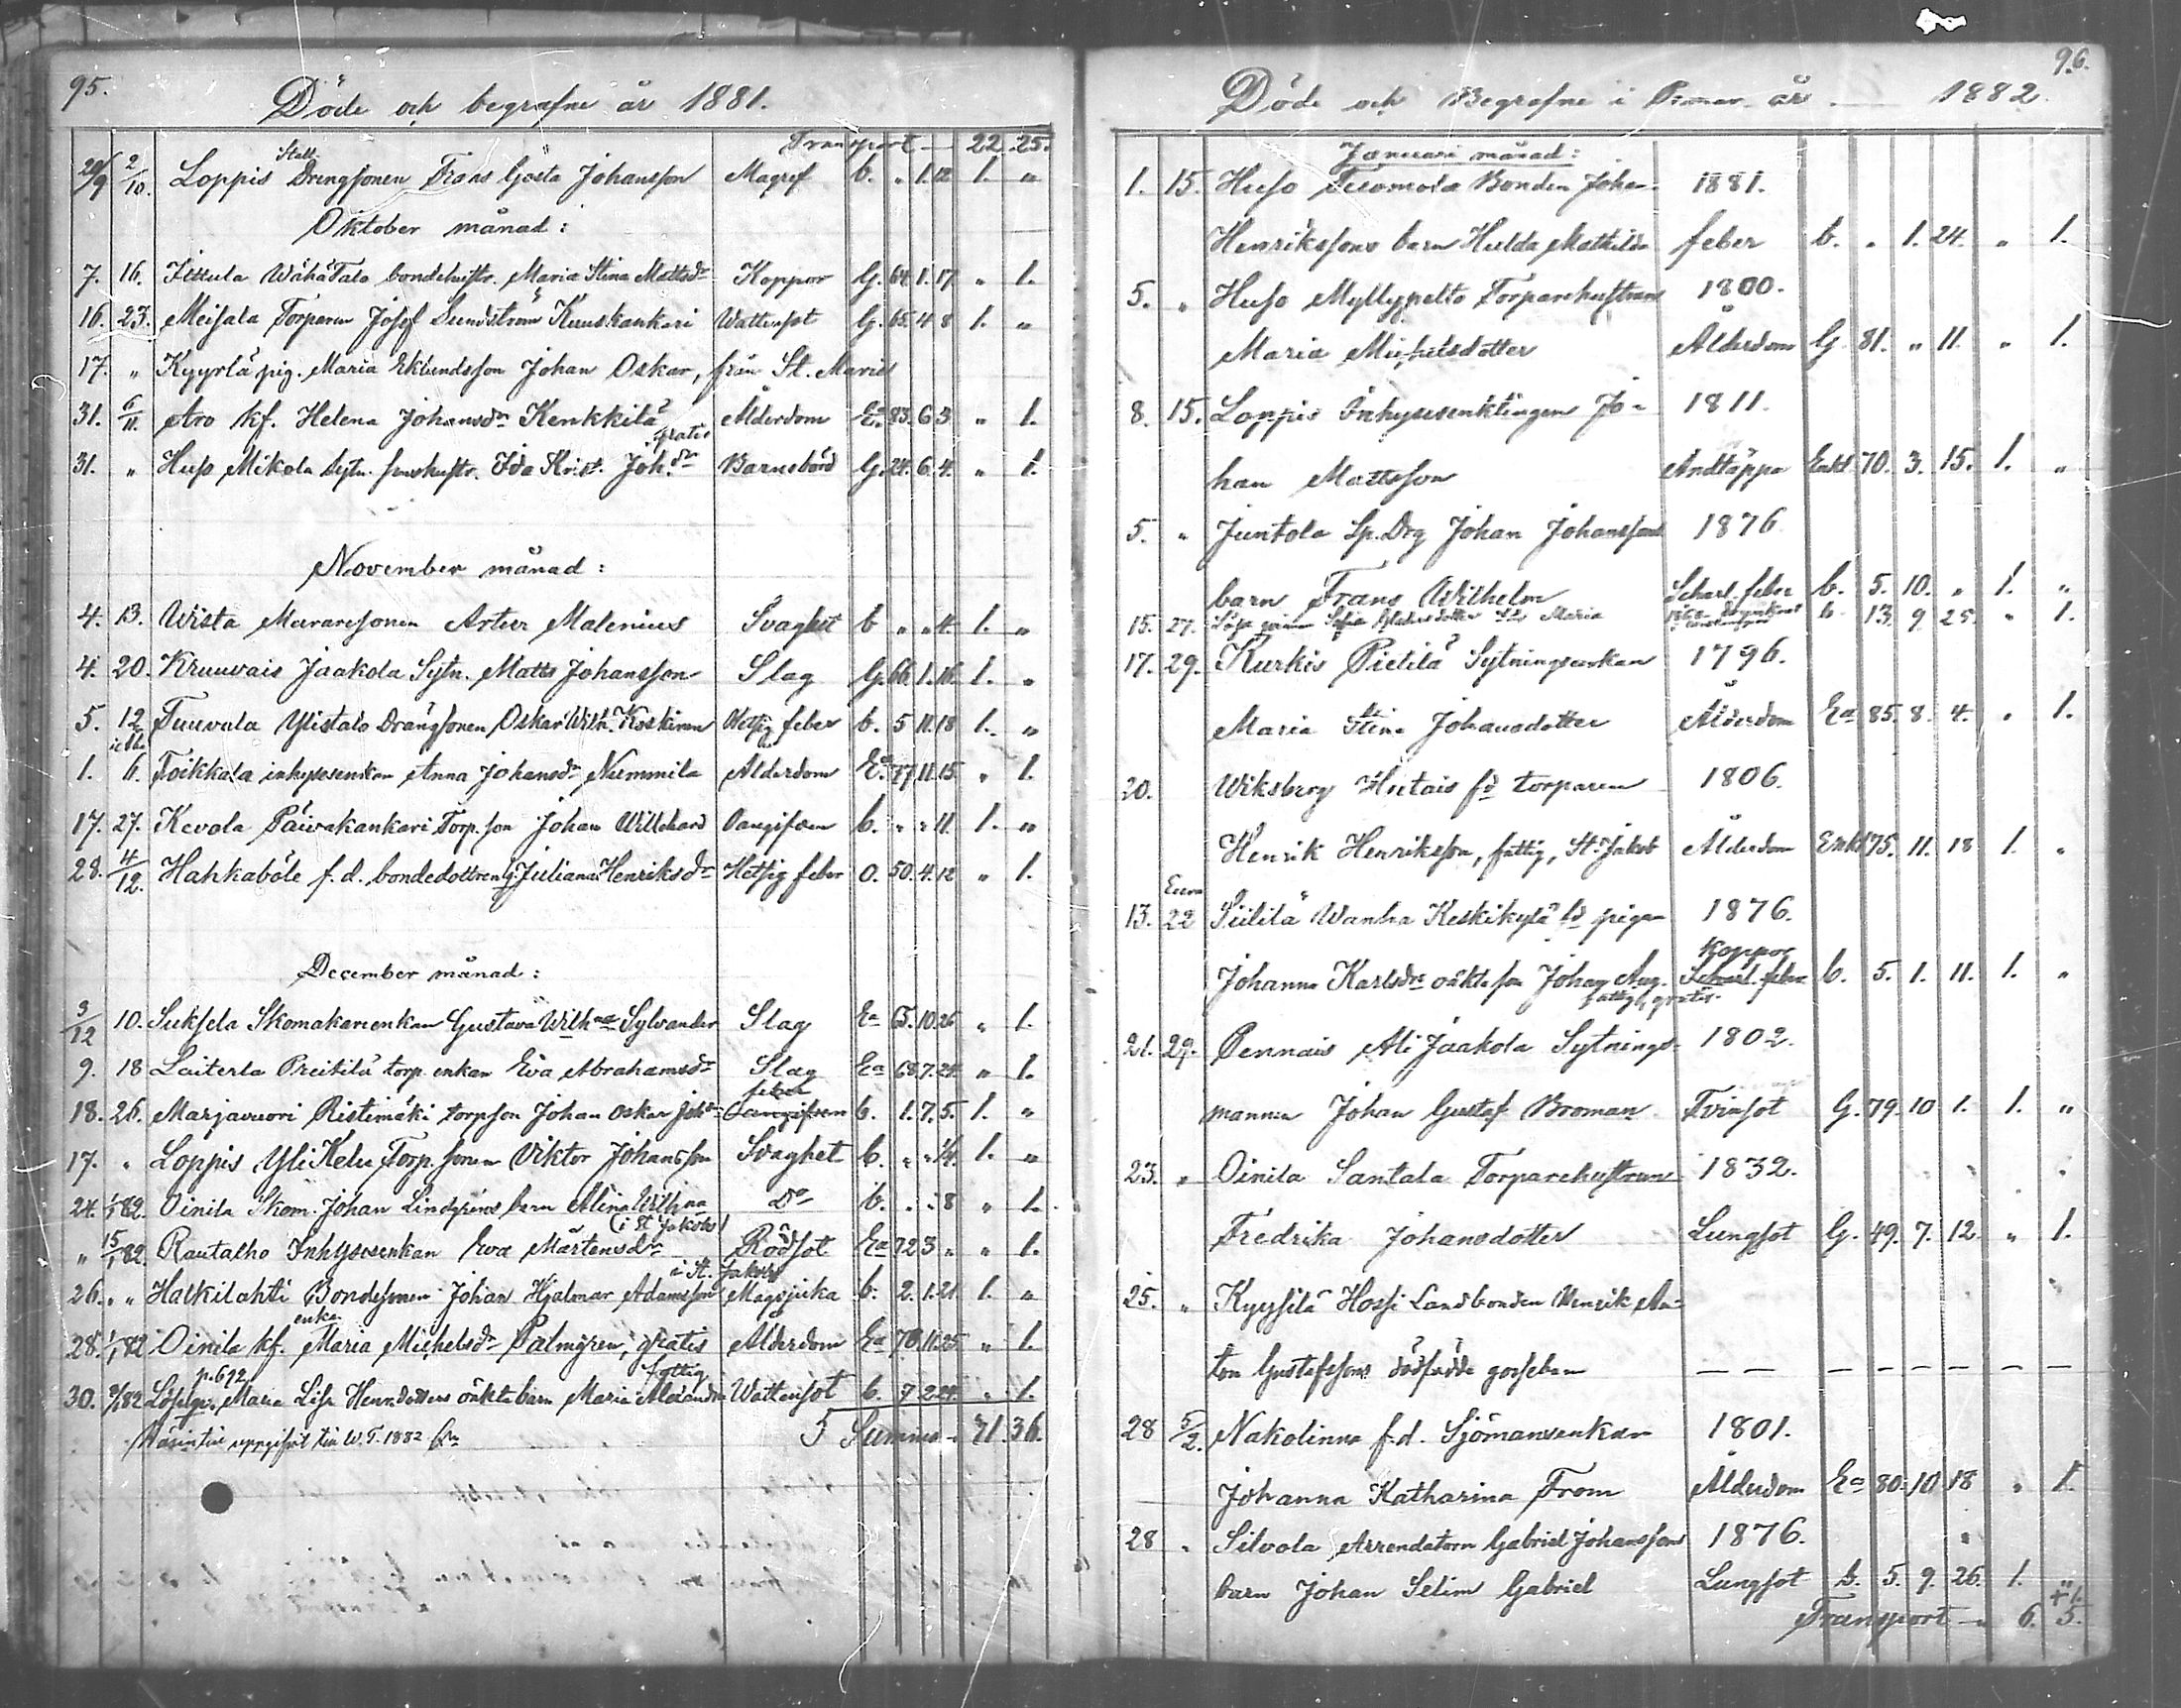 95.
Döde och begrafne år 1881.
Transport — 22. 25.
28/9 2/10. Loppis Drengsonen Frans Gösta Johansson Magref b. „ 1. 12 1. „
Oktober månad:
7. 16. WähäTalo bondehustr. Maria Stina Mattsdr Koppor G. 64 1. 17 „ 1.
16. 23. Meisala Torparen Josef Lundström Kuuskankari Wattensot G. 65. 4 8 1. „
17. „ Kyyrlä pig. Maria Eklundsson Johan Oskar, från St. Mariæ
31. 6/11. Aro kf. Helena Johansdr Kenkkilä Ålderdom Ea 83. 6 3 „ 1.
gratis
31. „ Huso Mikola Sytn. sonhustr. Ida Krist. Joh.dr Barnsbörd G. 24. 6. 4. „ 1.
November månad:
4. 13. Wista Muraresonen Artur Malenius Svaghet b „ „ 4. 1. „
4. 20. Kruuvais Jaakola Sytn. Matts Johansson Slag G. 66. 1. 16. 1. „
5. 12 Tuuvala Ylistalo Drängsonen Oskar Wilh. Koskinen Hetsig feber b. 5 11. 18 1. „
1. 6. Toikkala inhysesenkan Anna Johansdr Nummila Ålderdom Ea. 77 11. 15. „ 1.
17. 27. Kevola Päivakankari Torp. son Johan Willehard Oangifven b. „ „ 11. 1. „
28. 4/12. Hahkaböle f.d. bondedottren Juliana Henriksdr Hetsig feber O. 50. 4. 12 „ 1.
December månad:
3/12 10. Suksela Skomakarenkan Gustava Wilhna Sylvander Slag Ea 65. 10 26 „ 1.
9. 18 Laiterla Preitilä torp. enkan Eva Abrahamsdr Slag Ea 68. 7. 24. „ 1.
feber
18. 26. Marjavuori Ristimäki torpson Johan Oskar Oangifven b. 1. 7. 5. 1. „
17. „ Loppis YliKelu Torp. sonen Viktor Johansson Svaghet b. „ „ 1/4. 1. „
24. 1/1 82. Oinila Skom. Johan Lindgréns barn Alina Wilhna Do b. „ „ 8 „ 1.
(i St Jakobs)
„ 15/1 82. Rautalho Inhysesenkan Eva Mårtensdr Rödsot Ea 72 3 „ „ 1.
i St. Jakobs
26. „ „ Halkilahti Bondesonen Johan Hjalmar Adamsson Magsjuka b. 2. 1. 21 1. „
enka
28. 1/1 82 Oinila kf. Maria Michelsdr Palmgren, gratis Ålderdom Ea 70. 11. 25. „ 1.
p. 692 fattig
30. /1 82 Maria Lisa Henr.dotters oäkta barn Maria Alexandra Wattensot b. 7 2 24. „ 1.
uppgifvit till W. T. 1882 Summa — 31. 36.
96.
Döde och Begrafne i Pemar år — 1882.
Januari månad:
1. 15. Huso Tuomola Bonden Johan 1881.
Henrikssons barn Hulda Mathilda feber b. „ 1. 24. „ 1.
5. „ Huso Myllypelto Torparehustrun 1800.
Maria Michelsdotter Ålderdom G. 81. „ 11. „ 1.
8. 15. Loppis Inhysesenklingen Jo- 1811.
han Mattsson Andtäppa Enkl 70. 3. 15. 1. „
5. „ Juntola Sp. Drg Johan Johanssons 1876
barn Frans Wilhelm Scharl. feber b. 5. 10. „ 1. „
15. 27. Maria 1868 b. 13. 9 25. „ 1.
17. 29. Kurkis Pietilä Sytningsenkan 1796.
Maria Stina Johansdotter Ålderdom Ea 85. 8. 4. „ 1.
20. Wiksberg Hutais fd torparen 1806.
Henrik Henriksson, fattig, St. Jakob Ålderdom Enkl 75. 11. 18 1. „
Eura
13. 22 Wanha Keskikylä fd pigan 1876.
Koppor
Johanna Karlsdrs oäkta son Johan Aug. Scharl. feber b. 5. 1. 11. 1. „
fattig, gratis.
21. 29. Pennais Ali Jaakola Sytnings- 1802.
mannen Johan Gustaf Broman Tvinsot G. 79. 10 1. 1. „
23. „ Oinila Santala Torparehustrun 1832.
Fredrika Johansdotter Lungsot G. 49. 7. 12. „ 1.
25. „ Kyysilä Hossi Landbonden Henrik An-
ton Gustafssons dödfödde gossebarn — — — — — — —
28 5/2. Nakolinna f.d. Sjömansenkan 1801.
Johanna Katharina From Ålderdom Ea 80. 10 18 „ 1.
28 „ Silvola Arrendatorn Gabriel Johanssons 1876.
barn Johan Selim Gabriel Lungsot b. 5. 9. 26. 1. „
+1.
Transport — 6. 5.